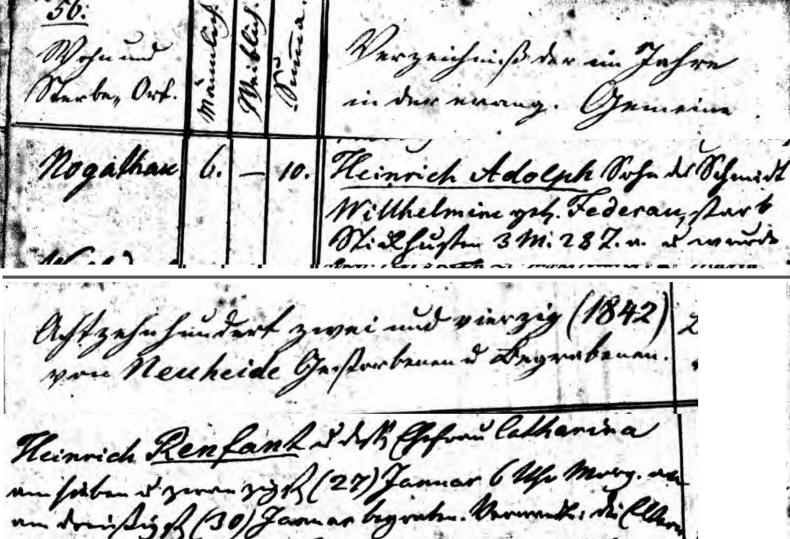 56.
Wohn und
Sterbe, Ort.
Männlich
Weiblich
Suma
Verzeichniß der im Jahre
in der evang. Gemeine
Nogathau 6. — 10. Heinrich Adolph Sohn des Schmidt
Willhelmine geb. Federau, starb
Stickhusten 3 M. 28 T. a. u wurde
Achtzehnhundert zwei und vierzig (1842)
von Neuheide Gestorbenen u Begrabenen.
Heinrich Renfant u dess. Ehefrau Catharina
am sieben u zwanzigst (27) Januar 6 Uhr Morg. am
am dreißigst (30) Januar begraben. die Eltern